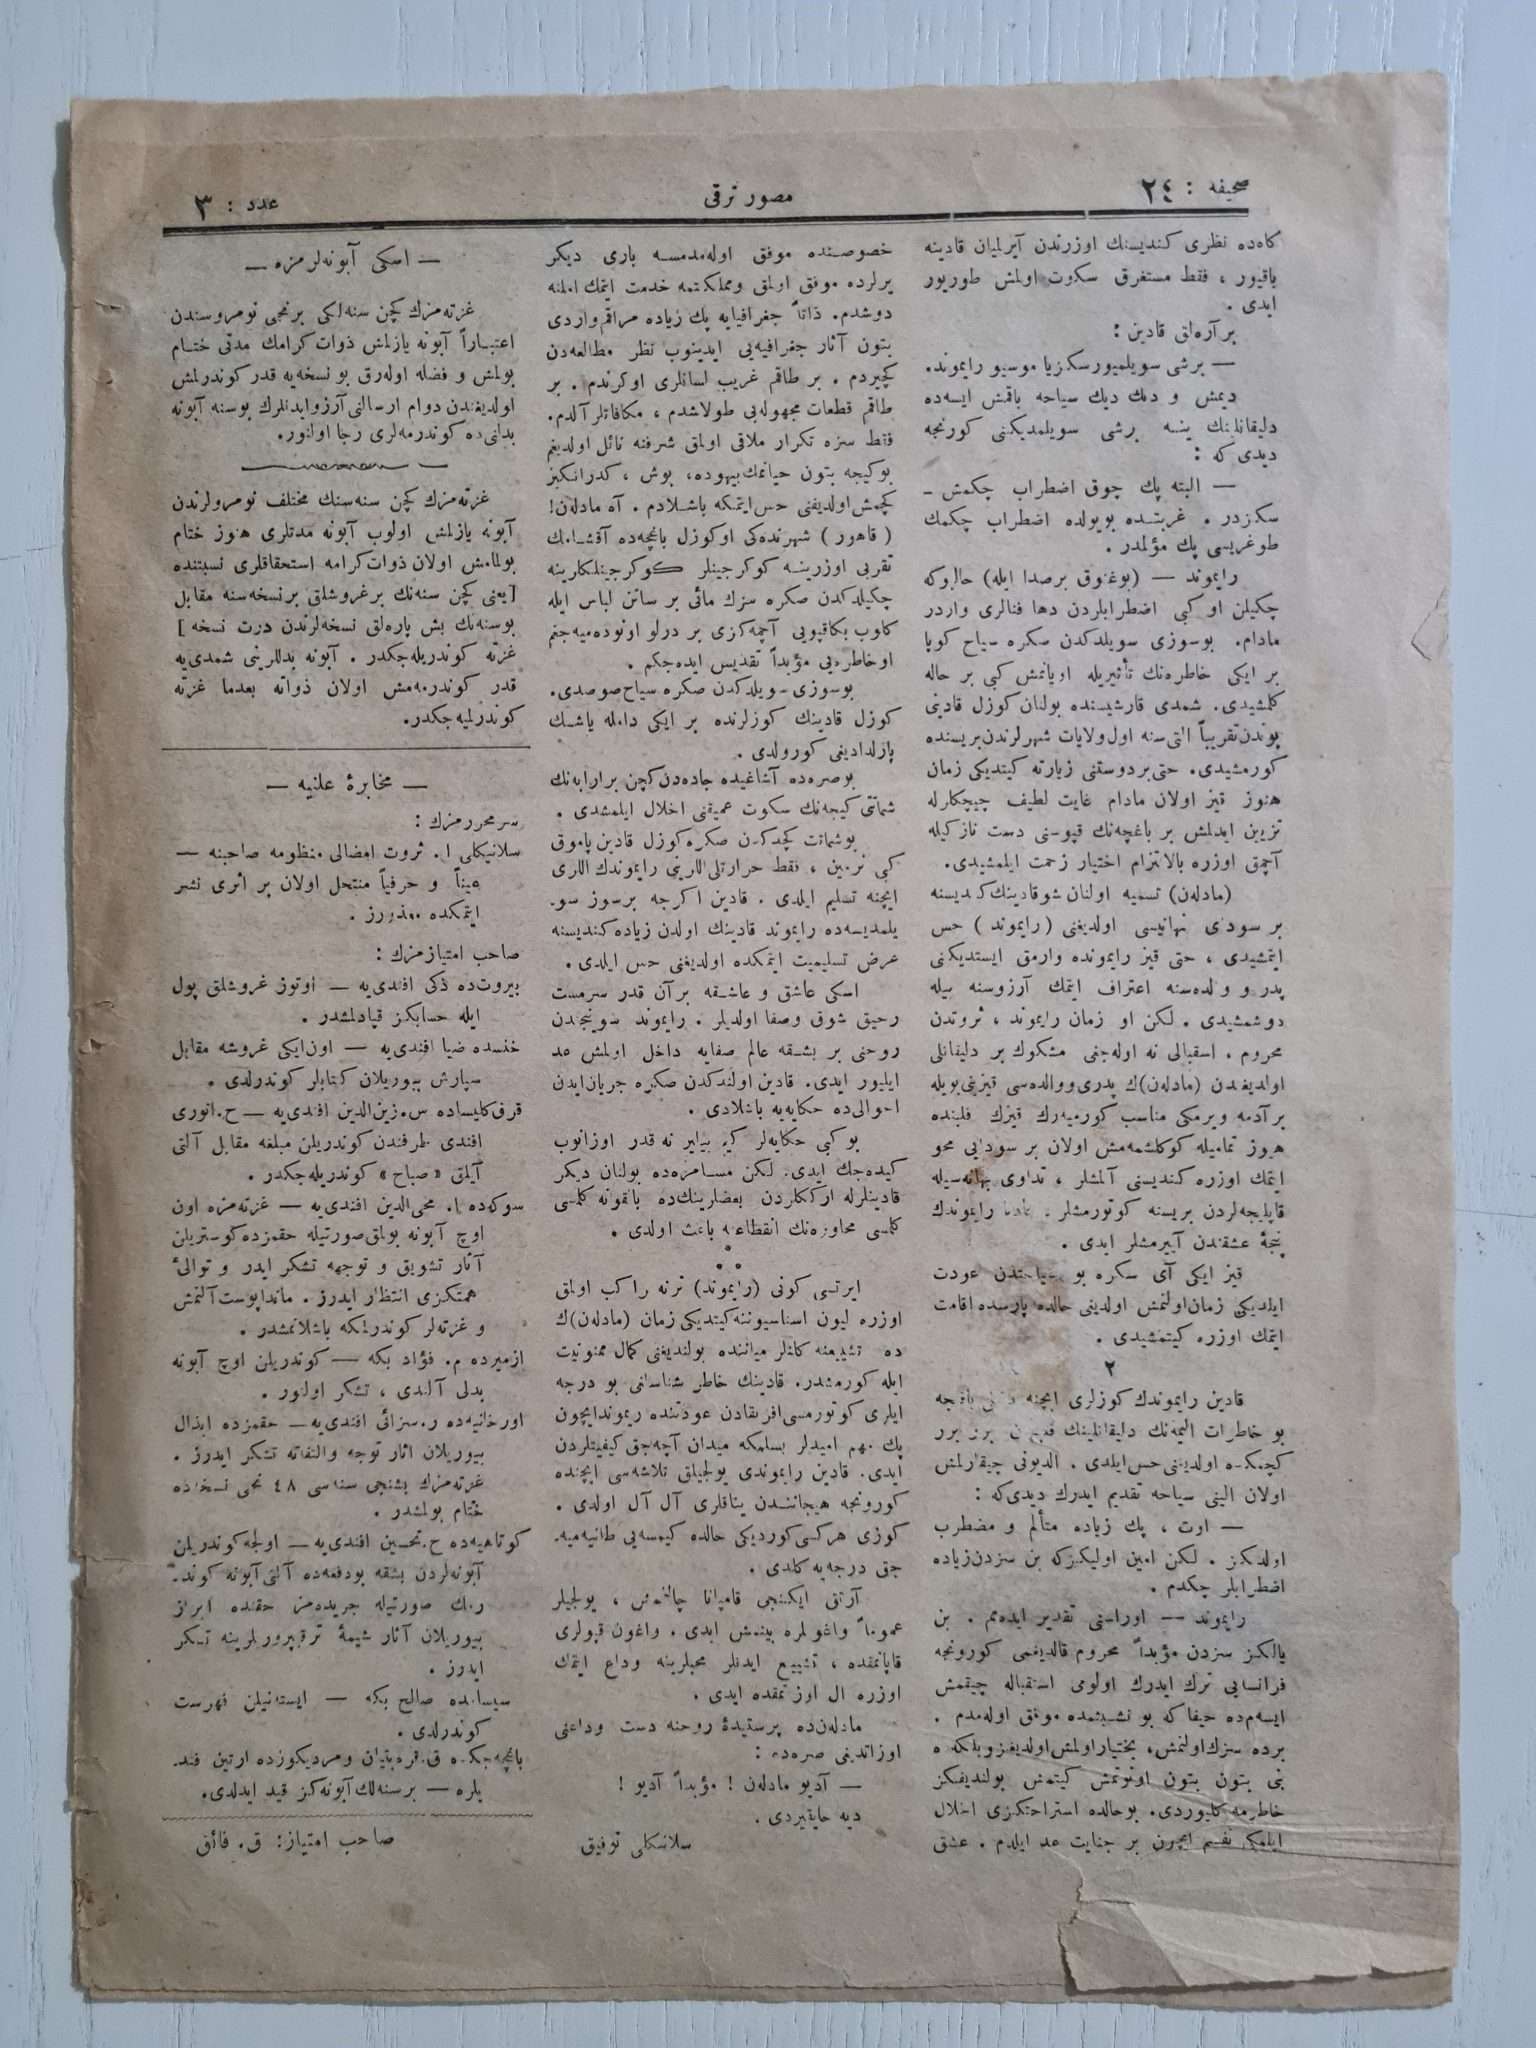 صحيفه : ٢٤
مصور ترقى
عدد : ٣
كاه‌ده نظرى كنديسنك اوزرندن آيرلميان قادينه
باقيور ، فقط مستغرق سكوت اولمش طوريور
ايدى .
بر آره‌لق قادين :
— برشى سويلميورسكزيا موسيو رايموند.
ديمش و دڭ ديك سياحه باقمش ايسه‌ده
دليقانلينك ينه برشى سويلمديكنى كورنجه
ديدى كه :
— البته پك چوق اضطراب چكمش ـ
سكزدر . غربتده بويولده اضطراب چكمك
طوغريسى پك مؤلمدر .
رايموند — (بوغوق برصدا ايله) حالبوكه
چكيلن او كبى اضطرابلردن دها فنالرى واردر
مادام. بوسوزى سويلدكدن صكره سياح كويا
بر ايكى خاطره‌نك تأثيريله اويانمش كبى بر حاله
كلمشيدى. شمدى قارشيسنده بولنان كوزل قادينى
بوندن تقريباً التى سنه اول ولايات شهرلرندن بريسنده
كورمشيدى. حتى بر دوستنى زيارته كيتديكى زمان
هنوز قيز اولان مادام غايت لطيف چيچكلرله
تزيين ايدلمش بر باغچه‌نك قپوسنى دست نازكيله
آچمق اوزره بالالتزام اختيار زحمت ايلمشيدى.
(مادله‌ن) تسميه اولنان شوقادينك كنديسنه
بر سوداى نهانيسى اولديغنى (رايموند) حس
ايتمشيدى ، حتى قيز رايمونده وارمق ايستديكنى
پدر و والده‌سنه اعتراف ايتمك آرزوسنه بيله
دوشمشيدى . لكن او زمان رايموند ، ثروتدن
محروم . اسقبالى نه اوله‌جغى مشكوك بر دليقانلى
اولديغندن (مادله‌ن)ك پدرى ووالده‌سى قيزينى بويله
برآدمه ويرمكى مناسب كورميه‌رك قيزك قلبنده
هنوز تماميله كوكلشمه‌مش اولان بر سودايى محو
ايتمك اوزره كنديسنى آلمشلر ، تداوى بهانه‌سيله
قاپليجه‌لردن بريسنه كوتورمشلر رايموندك
پنجهٔ عشقندن آييرمشلر ايدى .
قيز ايكى آى صكره بو سياحتدن عودت
ايلديكى زمان اولنمش اولديغى حالده پارسده اقامت
ايتمك اوزره كيتمشيدى .
٢
قادين رايموندك كوزلرى ايچنه باقنجه
بو خاطرات اليمه‌نك دليقانلينك برر برر
كچمكده اولديغنى حس ايلدى . الديونى چيقارلمش
اولان الينى سياحه تقديم ايدرك ديدى‌كه :
— اوت ، پك زياده متألم و مضطرب
اولدكز . لكن امين اوليكزكه بن سزدن زياده
اضطرابلر چكدم .
رايموند — اوراسنى تقدير ايده‌مم . بن
يالكز سزدن مؤبداً محروم قالديغمى كورونجه
فرانسايى ترك ايدرك اولومى استقباله چيقمش
ايسه‌م‌ده حيفا كه بو تشبثمده موفق اوله‌مدم .
برده سزك اولنمش، بختيار اولمش اولديغز وبلكه ه
بنى بتون بتون اونوتمش كيتمش بولنديغكز
خاطرمه كليوردى. بوحالده استراحتكزى اخلال
ايلمكى نفسم ايچون بر جنايت عد ايلدم . عشق
خصوصنده موفق اوله‌مدمسه بارى ديكر
يرلرده موفق اولمق ومملكتمه خدمت ايتمك املنه
دوشدم. ذاتاً جغرافيايه پك زياده مراقم واردى
بتون آثار جغرافيه‌يى ايدينوب نظر مطالعه‌دن
كچيردم . بر طاقم غريب لسانلرى اوكرندم . بر
طاقم قطعات مجهوله‌يى طولاشدم ، مكافاتلر آلدم.
فقط سزه تكرار ملاقى اولمق شرفنه نائل اولديغم
بوكيجه بتون حياتمك بيهوده، بوش ، كدرانكيز
كچمش اولديغنى حس ايتمكه باشلادم . آه مادله‌ن!
( قاهور ) شهرنده‌كى اوكوزل باغچه‌ده آقشامك
تقربى اوزرينه كوكرجينلر كوكرجينلكلرينه
چكيلدكدن صكره سزك مائى بر ساتن لباس ايله
كلوب بكاقپويى آچمه‌كزى بر درلو اونوده‌ميه‌جغم
اوخاطره‌يى مؤبداً تقديس ايده‌جكم .
بوسوزى سويلدكدن صكره سياح صوصدى.
كوزل قادينك كوزلرنده بر ايكى دامله ياشك
پارلداديغى كورولدى .
بوصره‌ده آشاغيده جاده‌دن كچن برارابه‌نك
شماتتى كيجه‌نك سكوت عميقنى اخلال ايلمشدى .
بوشماتت كچدكدن صكره كوزل قادين پاموق
كبى نرمين ، فقط حرارتلى اللرينى رايموندك اللرى
ايچنه تسليم ايلدى . قادين اكرچه برسوز سو‌ـ
يلمديسه‌ده رايموند قادينك اولدن زياده كنديسنه
عرض تسليميت ايتمكده اولديغنى حس ايلدى.
اسكى عاشق و عاشقه بر آن قدر سرمست
رحيق شوق وصفا اولديلر . رايموند سوينجندن
روحنى بر بشقه عالم صفايه داخل اولمش عد
ايليور ايدى. قادين اولندكدن صكره جريان ايدن
احوالى‌ده حكايه‌يه باشلادى .
بو كبى حكايه‌لر كيم بيلير نه قدر اوزانوب
كيده‌جك ايدى. لكن مسامره‌ده بولنان ديكر
قادينلرله ارككلردن بعضارينك‌ده بالقونه كلمسى
كلمسى محاوره‌نك انقطاعنه باعث اولدى .
ايرتسى كونى (رايموند) ترنه راكب اولمق
اوزره ليون استاسيوننه كيتديكى زمان (مادله‌ن)ك
ده تشييعنه كلنلر مياننده بولنديغنى كمال ممنونيت
ايله كورمشدر. قادينك خاطر شناسلغى بو درجه
ايلرى كوتورمسى افريقادن عودتنده ريموندايچون
پك مهم اميدلر بسلمكه ميدان آچه‌جق كيفيتلردن
ايدى. قادين رايموندى يولجيلق تلاشه‌سى ايچنده
كورونجه هيجاننندن يناقلرى آل آل اولدى .
كوزى هركسى كورديكى حالده كيمسه‌يى طانيه‌ميه‌ـ
جق درجه‌يه كلدى .
آرتق ايكنجى قامپانا چالنمش ، يولجيلر
عموماً واغونلره بينمش ايدى . واغون قپولرى
قاپانمقده ، تشييع ايدنلر محبلرينه وداع ايتمك
اوزره ال اوزتمقده ايدى .
مادله‌ن‌ده پرستيدهٔ روحنه دست وداعنى
اوزاتديغى صره‌ده :
— آديو مادله‌ن ! مؤبداً آديو !
ديه حايقيردى .
سلانيكلى توفيق
— اسكى آبونه‌لرمزه —
غزته‌مزك كچن سنه‌لكى برنجى نومروسندن
اعتباراً آبونه يازلمش ذوات كرامك مدتى ختام
بولمش و فضله اوله‌رق بو نسخه‌يه قدر كوندرلمش
اولديغندن دوام ارسالنى آرزو ايدنلرك بوسنه آبونه
بدلنى‌ده كوندرمه‌لرى رجا اولنور.
غزته‌مزك كچن سنه‌سنك مختلف نومرولرندن
آبونه يازلمش اولوب آبونه مدتلرى هنوز ختام
بولمامش اولان ذوات كرامه استحقاقلرى نسبتنده
[يعنى كچن سنه‌نك برغروشلق برنسخه‌سنه مقابل
بوسنه‌نك بش پاره‌لق نسخه‌لرندن درت نسخه ]
غزته كوندريله‌جكدر . آبونه بدللرينى شمدى‌يه
قدر كوندرمه‌مش اولان ذواته بعدما غزته
كوندرلميه‌جكدر.
— مخابرهٔ علنيه —
سرمحررمزك :
سلانيكلى ا. ثروت امضالى منظومه صاحبنه —
عيناً و حرفياً منتحل اولان بر اثرى نشر
ايتمكده معذورز .
صاحب امتيازمزك :
بيروت‌ده ذكى افندى‌يه — اوتوز غروشلق پول
ايله حسابكز قپادلمشدر .
خنسده ضيا افندى‌يه — اون‌ايكى غروشه مقابل
سپارش بيوريلان كتابلر كوندرلدى .
قرق‌كليساده س.زين‌الدين افندى‌يه — ح.انورى
افندى طرفندن كوندريلن مبلغه مقابل آلتى
آيلق «صباح» كوندريله‌جكدر .
سوكه‌ده ا. محى‌الدين افندى‌يه — غزته‌مزه اون
اوچ آبونه بولمق صورتيله حقمزده كوستريلن
آثار تشويق و توجهه تشكر ايدر و توالىٔ
همتكزى انتظار ايدرز . مانداپوست آلنمش
و غزته‌لر كوندرلمكه باشلانمشدر .
ازميرده م. فؤاد بكه — كوندريلن اوچ آبونه
بدلى آلندى ، تشكر اولنور .
اورخانيه‌ده ر.سزائى افندى‌يه — حقمزده ابذال
بيوريلان اثار توجه والتفاته تشكر ايدرز .
غزته‌مزك بشنجى سنه‌سى ٤٨ نجى نسخه‌ده
ختام بولمشدر .
كوتاهيه‌ده ح.تحسين افندى‌يه — اولجه كوندريلن
آبونه‌لردن بشقه بودفعه‌ده آلتى آبونه كوند‌ـ
رمك صورتيله جريده‌مز حقنده ابراز
بيوريلان آثار شيمهٔ ترقيپرورلرينه تشكر
ايدرز .
سيسامده صالح بكه — ايستنيلن فهرست
كوندرلدى .
باغچه‌جكده ق.قره‌بتيان ومرديكوزده ارتين فند‌ـ
يلره — برسنه‌لك آبونه‌كز قيد ايدلدى.
صاحب امتياز: ق. فائق